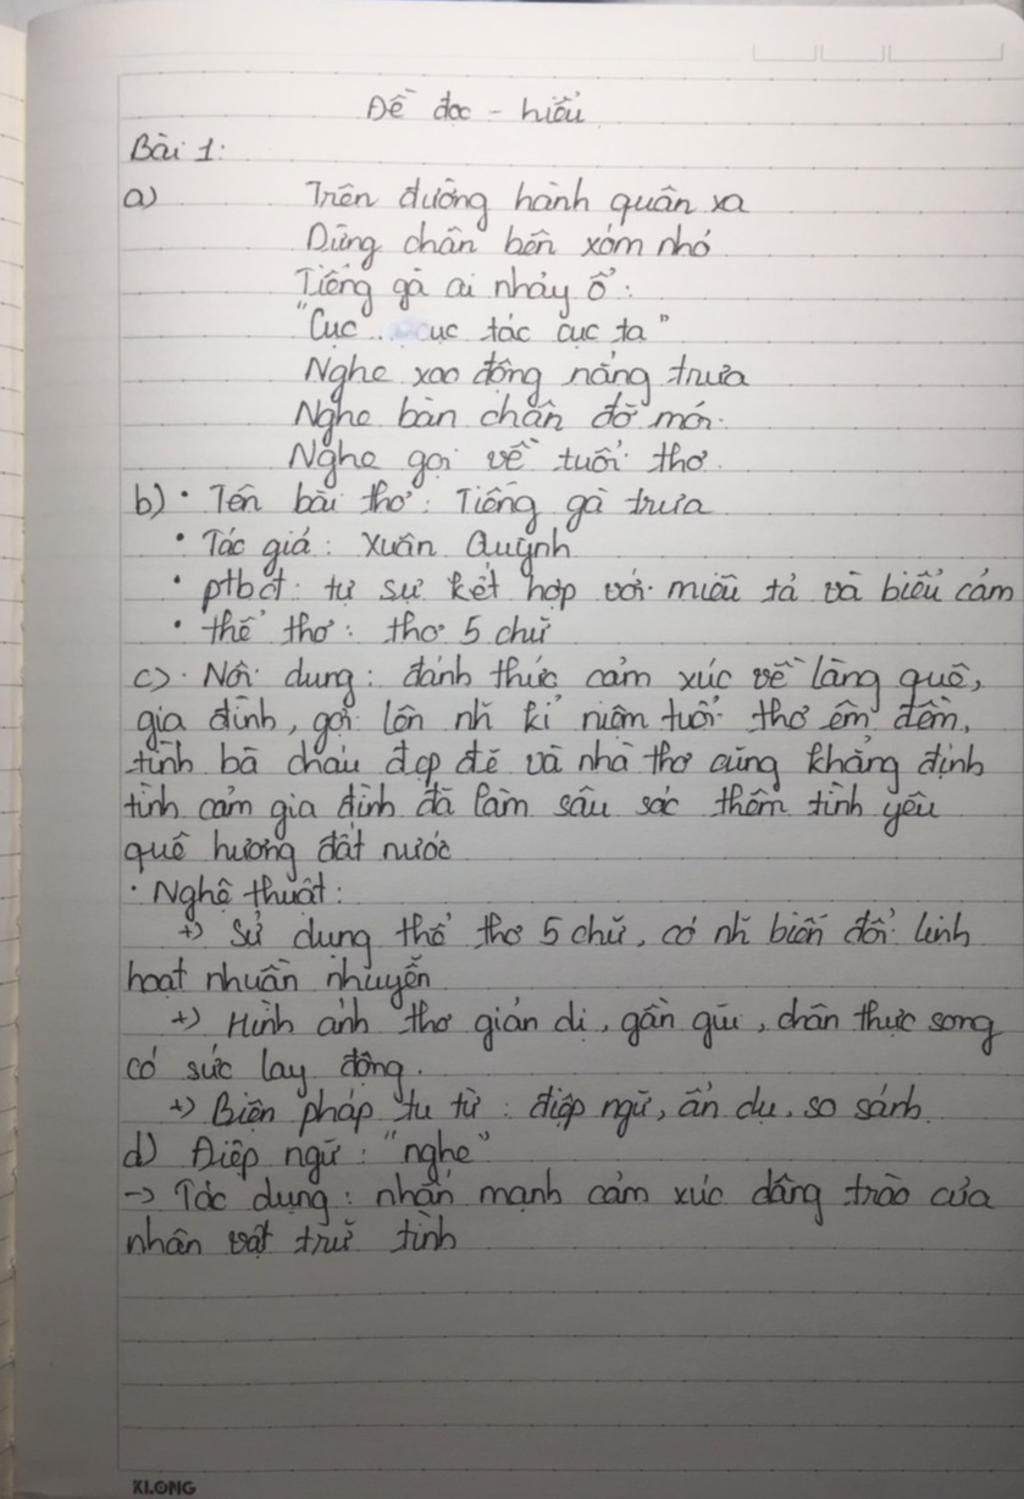 Đề đọc - hiểu
Bài 1:
a) Trên đường hành quân xa
Dừng chân bên xóm nhỏ
Tiếng gà ai nhảy ổ:
"Cục ... cục tác cục ta"
Nghe xao động nắng trưa
Nghe bàn chân đỡ mỏi
Nghe gọi về tuổi thơ.
b) • Tên bài thơ: Tiếng gà trưa
• Tác giả: Xuân Quỳnh
• ptbđ: tự sự kết hợp với miêu tả và biểu cảm
• thể thơ: thơ 5 chữ
c) • Nội dung: đánh thức cảm xúc về làng quê,
gia đình, gợi lên nh~ kỉ niệm tuổi thơ êm đềm,
tình bà cháu đẹp đẽ và nhà thơ cũng khẳng định
tình cảm gia đình đã làm sâu sắc thêm tình yêu
quê hương đất nước
• Nghệ thuật:
+) Sử dụng thể thơ 5 chữ, có nh~ biến đổi linh
hoạt nhuần nhuyễn
+) Hình ảnh thơ giản dị, gần gũi, chân thực song
có sức lay động.
+) Biện pháp tu từ: điệp ngữ, ẩn dụ, so sánh.
d) Điệp ngữ: "nghe"
-> Tác dụng: nhấn mạnh cảm xúc dâng trào của
nhân vật trữ tình
KLONG